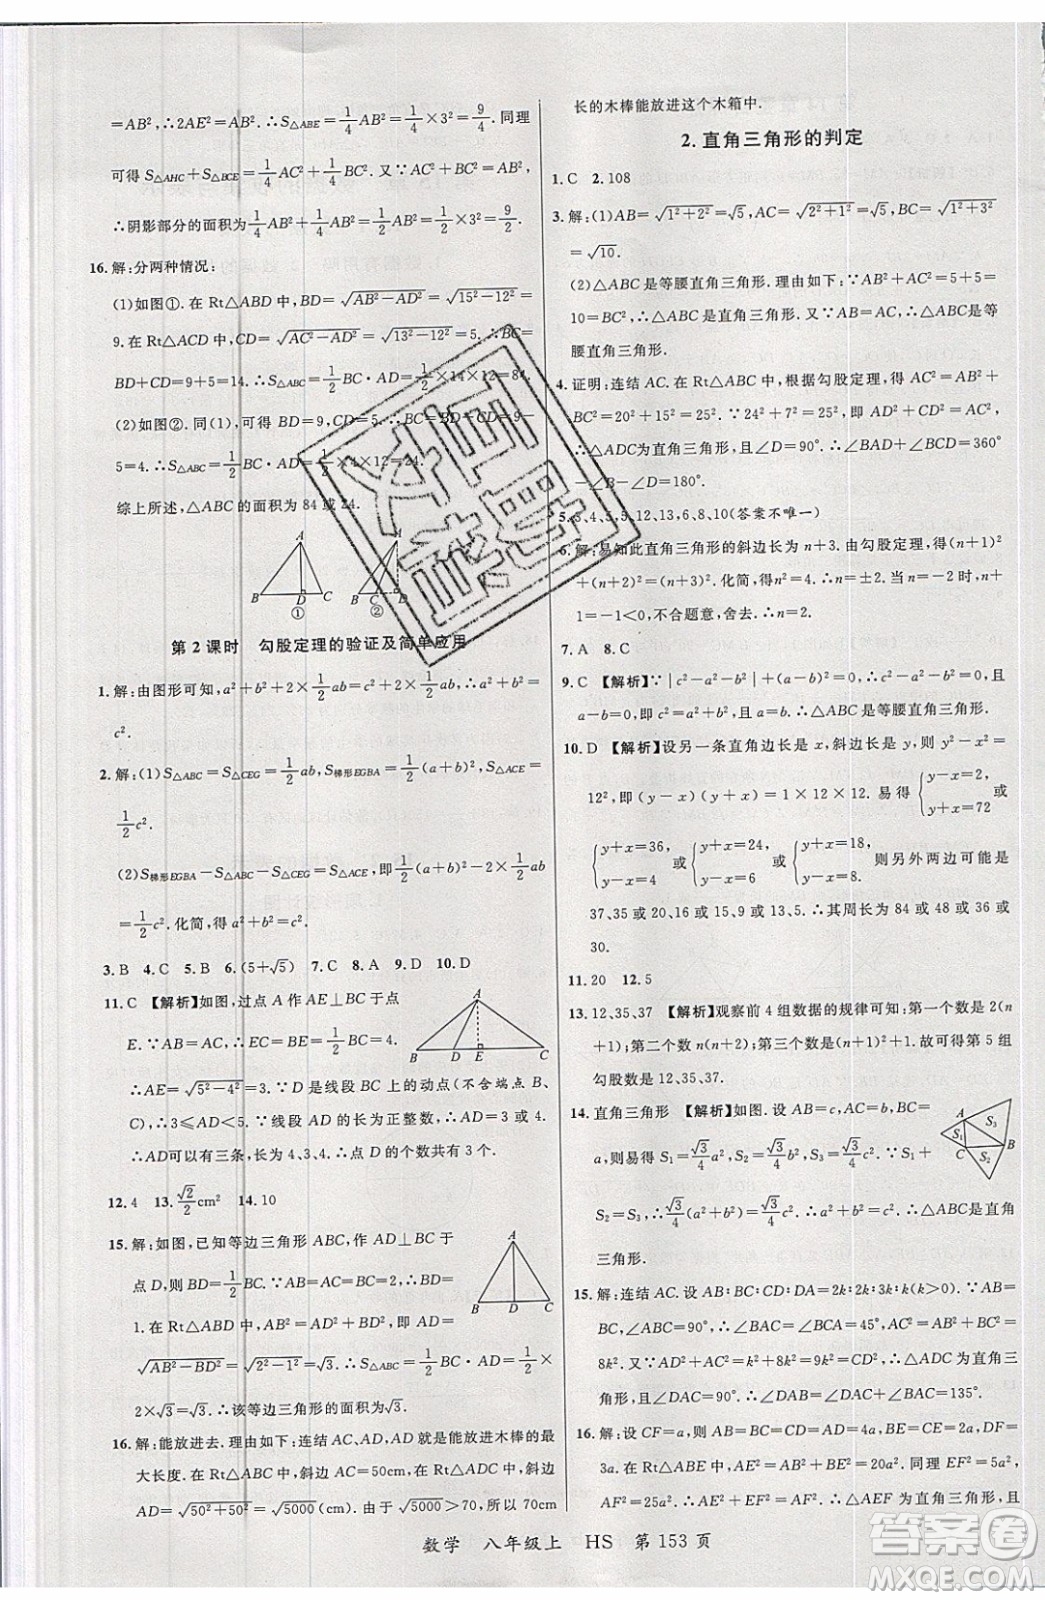 =AB²,∴2AE²=AB²,∴S△ABE=1/4AB²=1/4×3²=9/4.同理
可得 S△AHC+S△BCE=1/4AC²+1/4BC².又∵AC²+BC²=AB²,
∴阴影部分的面积为1/4AB²+1/4AB²=1/2AB²=1/2×3²=9/2.
16.解:分两种情况:
(1)如图①.在 Rt△ABD 中,BD=√(AB²-AD²)=√(15²-12²)=
9.在 Rt△ACD 中,CD=√(AC²-AD²)=√(13²-12²)=5.∴BC=
BD+CD=9+5=14.∴S△ABC=1/2BC·AD=1/2×14×12=84.
(2)如图②.同(1),可得 BD=9,CD=5.∴BC=BD-CD=9-
5=4.∴S△ABC=1/2BC·AD=1/2×4×12=24.
综上所述,△ABC 的面积为 84 或 24.
A A
B D C B C D
① ②
第 2 课时 勾股定理的验证及简单应用
1.解:由图形可知,a²+b²+2×1/2ab=c²+2×1/2ab,∴a²+b²=
c².
2.解:(1)S△ABC=S△CEG=1/2ab,S梯形EGBA=1/2(a+b)²,S△ACE=
1/2c².
(2)S梯形EGBA-S△ABC-S△CEG=S△ACE,即1/2(a+b)²-2×1/2ab
=1/2c².化简,得 a²+b²=c².
3.B 4.C 5.B 6.(5+√5) 7.C 8.A 9.D 10.D
11.C 【解析】如图,过点 A 作 AE⊥BC 于点
E.∵AB=AC,∴EC=BE=1/2BC=4.
∴AE=√(5²-4²)=3.∵D 是线段 BC 上的动点(不含端点 B、
C),∴3≤AD<5.∵线段 AD 的长为正整数,∴AD=3 或 4.
∴AD可以有三条,长为 4、3、4.∴点 D 的个数共有 3 个.
A
B D E C
12.4 13.√2/2cm² 14.10
15.解:如图,已知等边三角形 ABC,作 AD⊥BC 于
点 D,则 BD=1/2BC.∵AB=BC=AC=2,∴BD=
1.在 Rt△ABD 中,根据勾股定理,得 AD=
√(AB²-BD²)=√(2²-1²)=√3.∴S△ABC=1/2BC·AD=1/2×
2×√3=√3.∴该等边三角形的面积为√3.
A
B D C
16.解:能放进去.理由如下:连结 AC、AD,AD 就是能放进木棒的最
大长度.在 Rt△ABC 中,斜边 AC=50cm,在 Rt△ADC 中,斜边
AD=√(50²+50²)=√(5000)(cm).由于√5000>70,所以 70cm
长的木棒能放进这个木箱中.
2.直角三角形的判定
1.C 2.108
3.解:(1)AB=√(1²+2²)=√5,AC=√(2²+1²)=√5,BC=√(1²+3²)
=√10.
(2)△ABC 是等腰直角三角形.理由如下:∵AB²+AC²=5+5=
10=BC²,∴△ABC 是直角三角形.又∵AB=AC,∴△ABC 是等
腰直角三角形.
4.证明:连结 AC.在 Rt△ABC 中,根据勾股定理,得 AC²=AB²+
BC²=20²+15²=25².∵24²+7²=25²,即 AD²+CD²=AC²,
∴△ADC为直角三角形,且∠D=90°.∴∠BAD+∠BCD=360°
-∠B-∠D=180°.
5.3,4,5,5,12,13,6,8,10(答案不唯一)
6.解:易知此直角三角形的斜边长为 n+3.由勾股定理,得(n+1)²
+(n+2)²=(n+3)².化简,得n²=4.∴n=±2.当 n=-2时,n+
1=-1<0,不合题意,舍去.∴n=2.
7.A 8.C
9.C 【解析】∵|c²-a²-b²|+(a-b)²=0,∴c²-a²-b²=0,且
a-b=0,即 c²=a²+b²,且 a=b.∴△ABC是等腰直角三角形.
10.D 【解析】设另一条直角边长是 x,斜边长是 y,则 y²-x²=
12²,即(y-x)(y+x)=1×12×12.易得 {y-x=2, y+x=72 或
{y+x=36, y-x=4 或 {y+x=24, y-x=6 或 {y+x=18, y-x=8. 则另外两边可能是
37,35 或 20,16 或 15,9 或 13,5.∴其周长为 84 或 48 或 36 或
30.
11.20 12.5
13.12,35,37 【解析】观察前 4 组数据的规律可知:第一个数是 2(n
+1);第二个数 n(n+2);第三个数是(n+1)²+1.故可得第 5 组
勾股数是 12,35,37.
14.直角三角形 【解析】如图.设 AB=c,AC=b,BC=
a,则易得 S₁=√3/4b²,S₂=√3/4a²,S₃=√3/4c².∵S₁+
S₂=S₃,∴√3/4(a²+b²)=√3/4c².∴a²+b²=c².∴△ABC是直角
三角形.
A S₃ S₁ B C S₂
15.解:连结 AC.设 AB∶BC∶CD∶DA=2k∶2k∶3k∶k(k>0).∵AB=
BC,∠ABC=90°,∴∠CAB=∠BCA=45°,AC²=AB²+BC²=
8k².∴AC²+DA²=8k²+k²=9k²=CD².∴△DAC 为直角三
角形,且∠CAD=90°.∴∠DAB=∠DAC+∠CAB=135°.
16.解:设 CF=a,则 AB=BC=CD=AD=4a,BE=CE=2a,DF=
3a.在 Rt△ABE 中,AE²=AB²+BE²=20a².同理 EF²=5a²,
AF²=25a².∴AF²=AE²+EF².∴△AEF 为直角三角形.
数学 八年级上 HS 第 153 页
答案圈
MXQE.COM